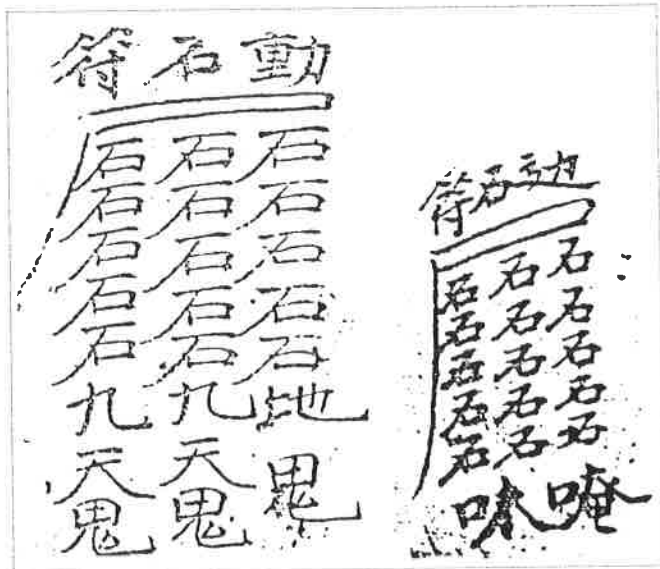 動石符
石石石石石地
石石石石石九天鬼
石石石石石九天鬼
边石符
石石石石石唵
石石石石石
石石石石石